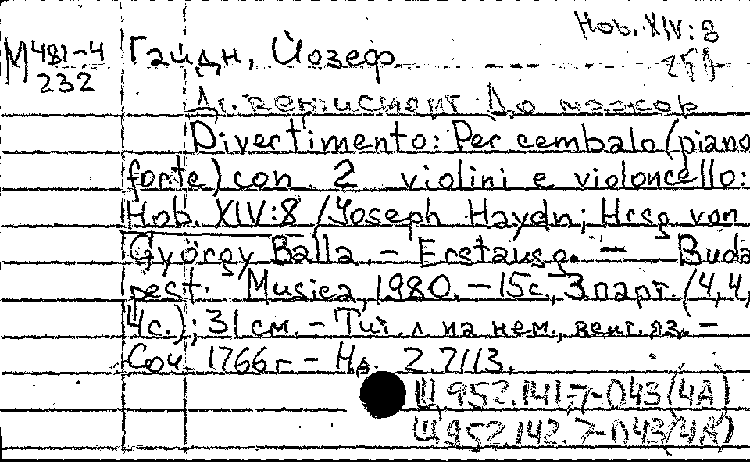 Hob. XIV:8
М 481-4
232
Гайдн, Йозеф
Дивертисмент До мажор
Divertimento: Per cembalo (piano
forte) con 2 violini e violoncello:
Hob. XIV:8 / Joseph Haydn; Hrsg. von
György Balla. - Erstausg. - Buda
pest: Musica, 1980. - 15 с., 3 парт. (4, 4,
4 с.); 31 см. - Тит. л. на нем., венг. яз. -
Соч. 1766 г. - Н.д. Z. 7113.
Щ 952.141.7-043 (4А)
Щ 952.142.7-043 (4А)